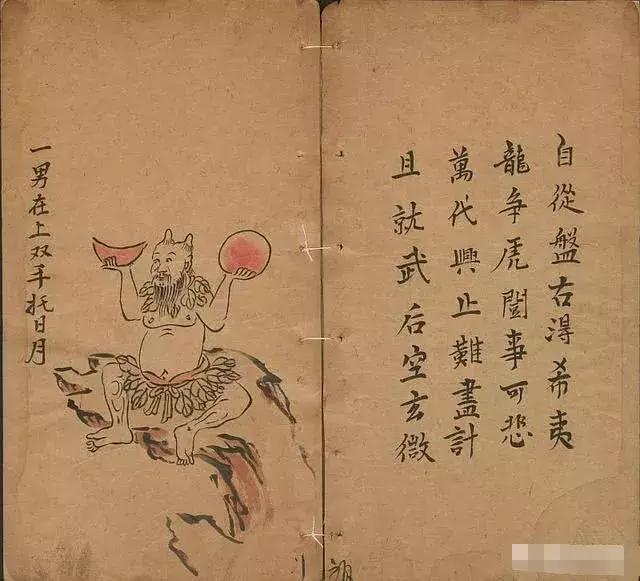 自從盤右淂希夷
龍争虎鬪事可悲
萬代興止難盡計
且就武后空玄微
一男在上双手托日月